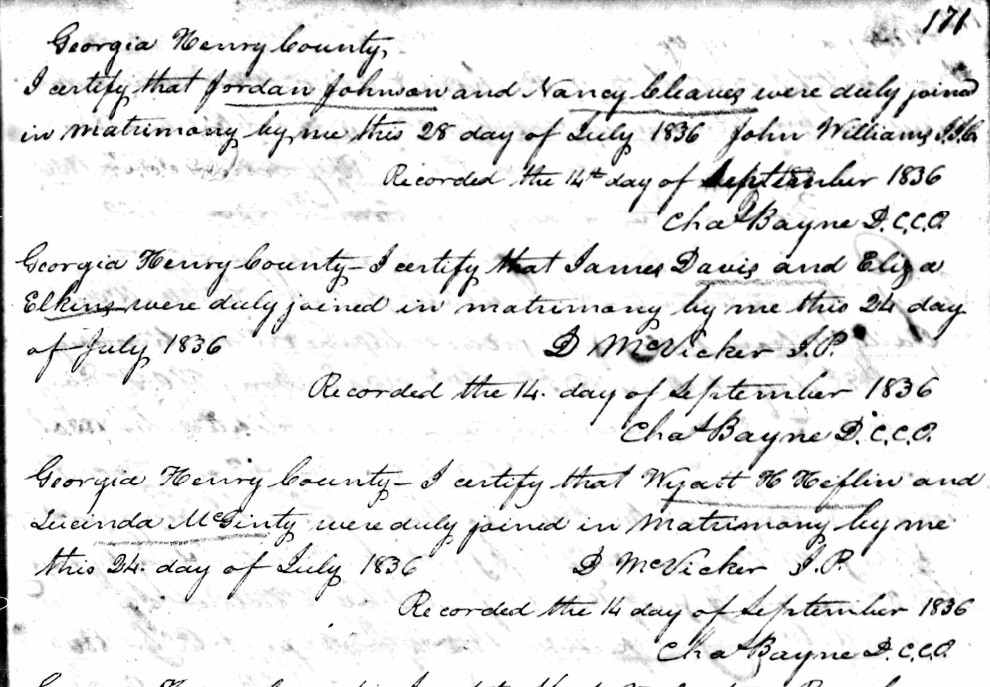 171
Georgia Henry County,
I certify that Jordan Johnson and Nancy Cleaves were duly joined
in matrimony by me this 28 day of July 1836 John Williams J.I.C.
Recorded the 14th day of September 1836
Chas Bayne D.C.C.O.
Georgia Henry County - I certify that James Davis and Eliza
Elkins were duly joined in matrimony by me this 24 day
of July 1836 D McVicker J.P.
Recorded the 14. day of September 1836
Chas Bayne D.C.C.O.
Georgia Henry County - I certify that Wyatt H Heflin and
Lucinda McGinty were duly joined in Matrimony by me
this 24. day of July 1836 D McVicker J.P.
Recorded the 14 day of September 1836
Chas Bayne D.C.C.O.